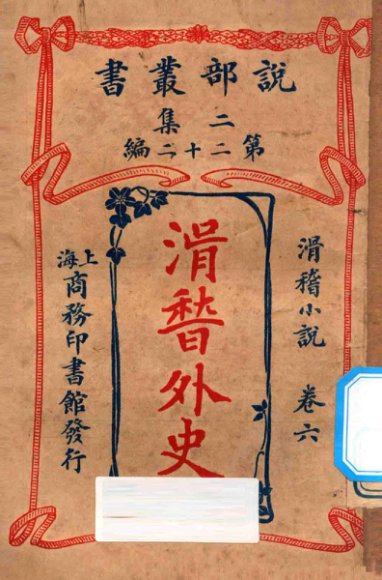 說部叢書
二集
第二十二編
滑稽小說 卷六
滑稽外史
上海商務印書館發行